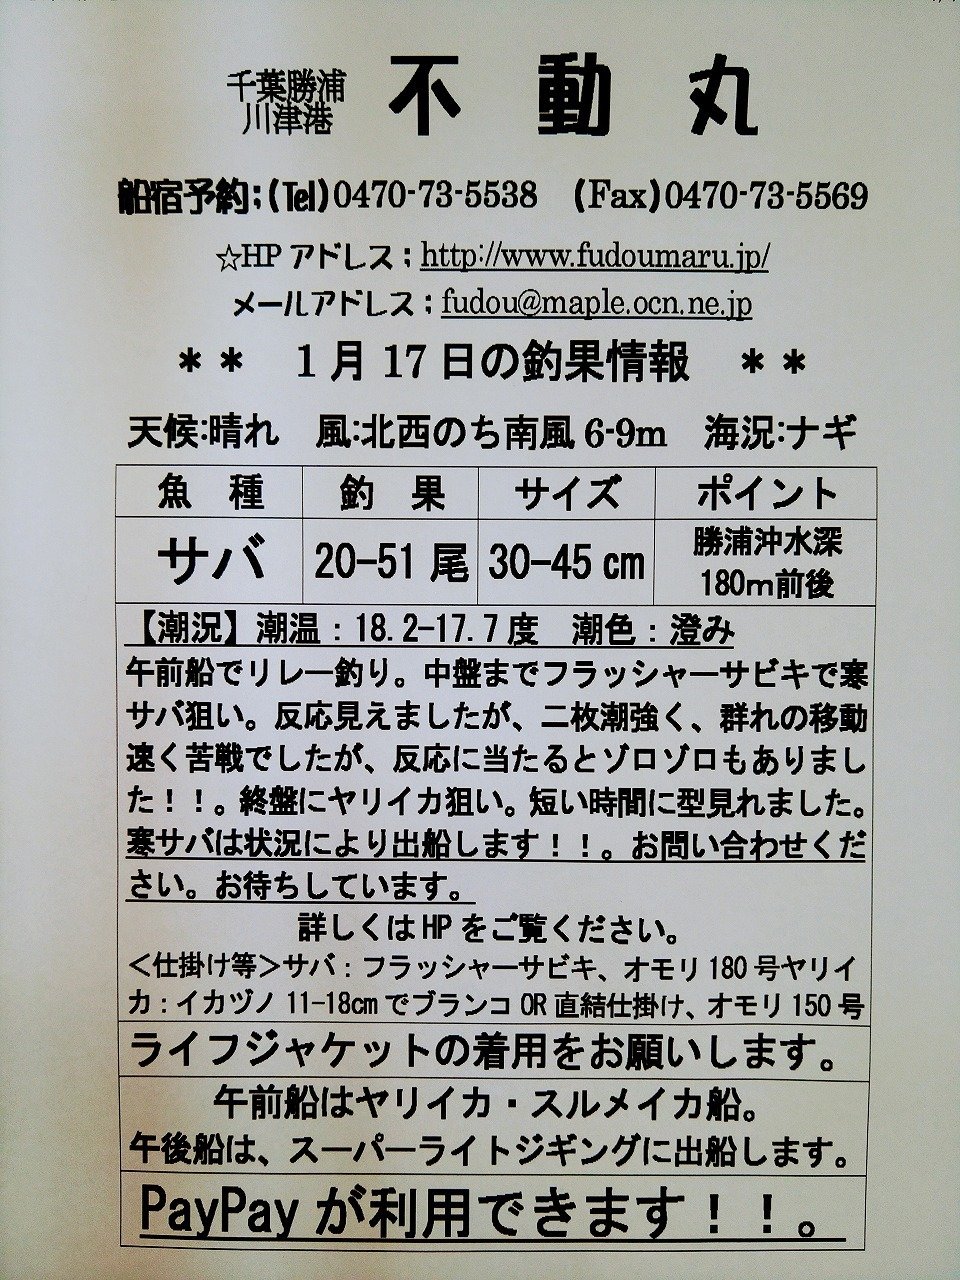 千葉勝浦
川津港
不動丸
船宿予約;(Tel)0470-73-5538 (Fax)0470-73-5569
☆HPアドレス；http://www.fudoumaru.jp/
メールアドレス；fudou@maple.ocn.ne.jp
＊＊ 1月17日の釣果情報 ＊＊
天候:晴れ 風:北西のち南風6-9m 海況:ナギ
魚種 釣果 サイズ ポイント
サバ 20-51尾 30-45cm 勝浦沖水深
180m前後
【潮況】潮温：18.2-17.7度 潮色：澄み
午前船でリレー釣り。中盤までフラッシャーサビキで寒
サバ狙い。反応見えましたが、二枚潮強く、群れの移動
速く苦戦でしたが、反応に当たるとゾロゾロもありまし
た！！。終盤にヤリイカ狙い。短い時間に型見れました。
寒サバは状況により出船します！！。お問い合わせくだ
さい。お待ちしています。
詳しくはHPをご覧ください。
＜仕掛け等＞サバ：フラッシャーサビキ、オモリ180号ヤリイ
カ：イカヅノ 11-18cmでブランコOR直結仕掛け、オモリ150号
ライフジャケットの着用をお願いします。
午前船はヤリイカ・スルメイカ船。
午後船は、スーパーライトジギングに出船します。
PayPayが利用できます！！。